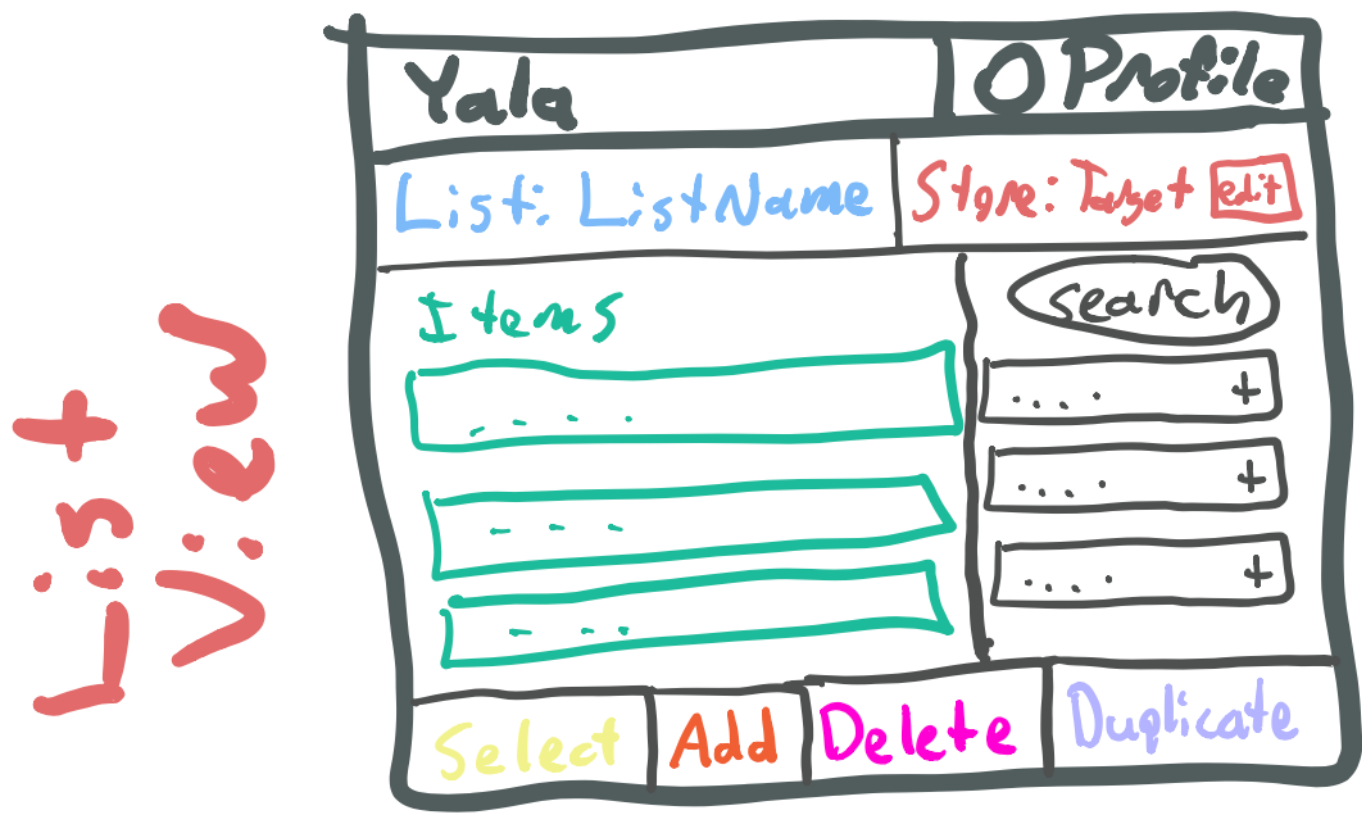 List
View
Yala
O Profile
List: ListName
Store: Target edit
Items
search
+
+
+
Select
Add
Delete
Duplicate